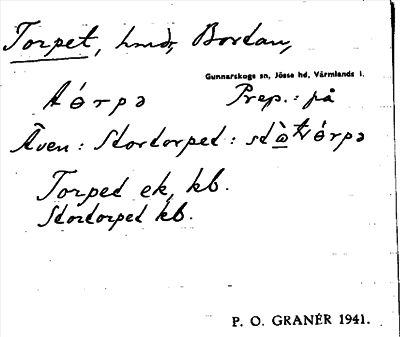 Torpet, hmd, Bortan,
Gunnarskogs sn, Jösse hd, Värmlands l.
tórpə Prep.: på
Även: Stortorpet: stòtórpə
Torpet ek, kb.
Stortorpet kb.
P. O. GRANÉR 1941.